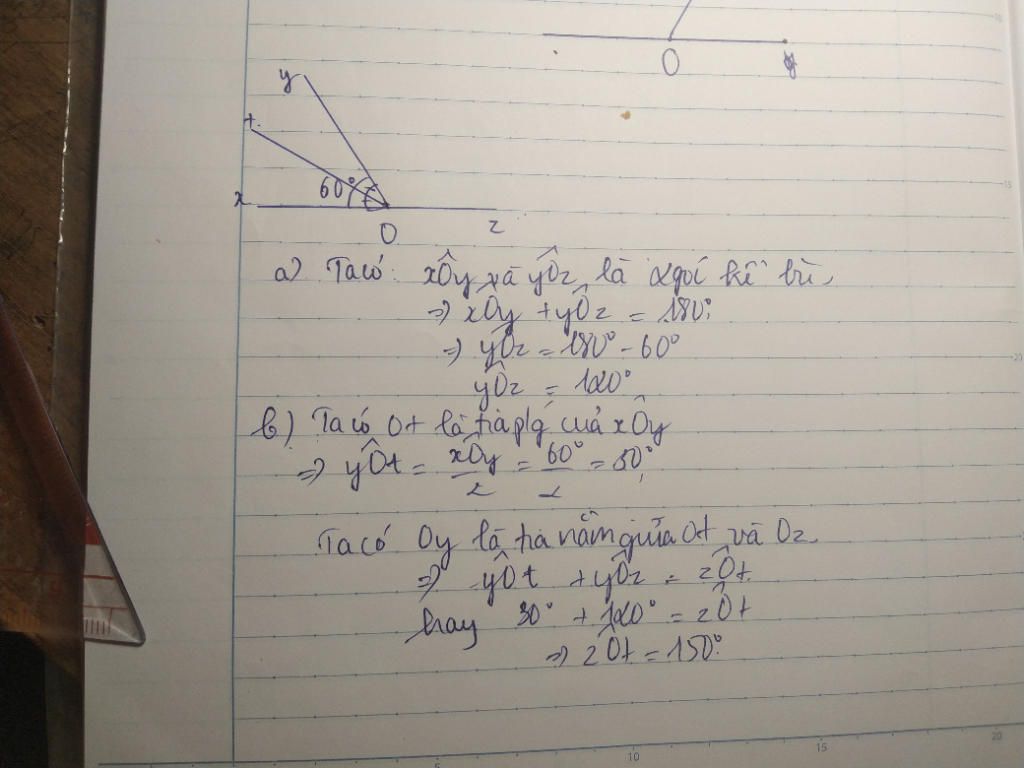 O y
y
t
x 60° O z
a) Ta có: xÔy và yÔz là 2 góc kề bù,
⇒ xÔy + yÔz = 180°
⇒ yÔz = 180° - 60°
yÔz = 120°
b) Ta có Ot là tia p/g của xÔy
⇒ yÔt = xÔy/2 = 60°/2 = 30°
Ta có Oy là tia nằm giữa Ot và Oz
⇒ yÔt + yÔz = zÔt
hay 30° + 120° = zÔt
⇒ zÔt = 150°.
5 10 15 20
15
20